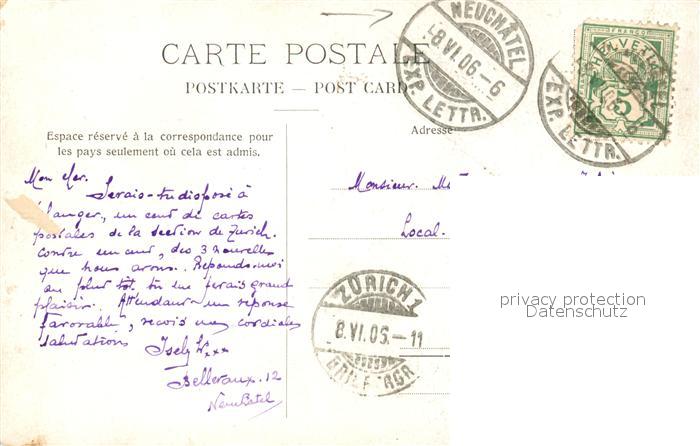 NEUCHÂTEL
8.VI.06-6
EXP. LETTR.
FRANCO
HELVETIA
5
EXP. LETTR.
CARTE POSTALE
POSTKARTE — POST CARD
Espace réservé à la correspondance pour
les pays seulement où cela est admis.
Adresse
Mon cher.
Serais-tu disposé à
un cent de cartes
postales de la section de Zurich.
contre un cent, des 3 nouvelles
que nous avons. Réponds-moi
au plus tôt. tu me ferais grand
plaisir. Attendant une réponse
favorable, reçois mes cordiales
salutations
Isely
Bellevaux. 12
Neuchatel
Monsieur.
Local.
ZÜRICH 1
8.VI.06.-11
privacy protection
Datenschutz